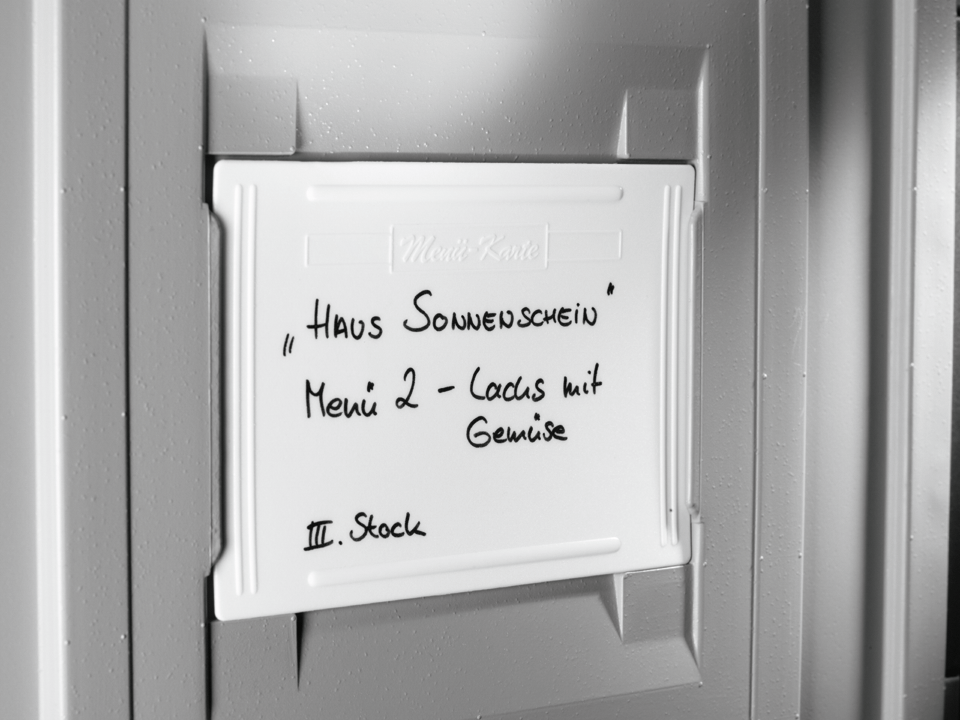 Menü-Karte
„Haus Sonnenschein"
Menü 2 - Lachs mit
Gemüse
III. Stock